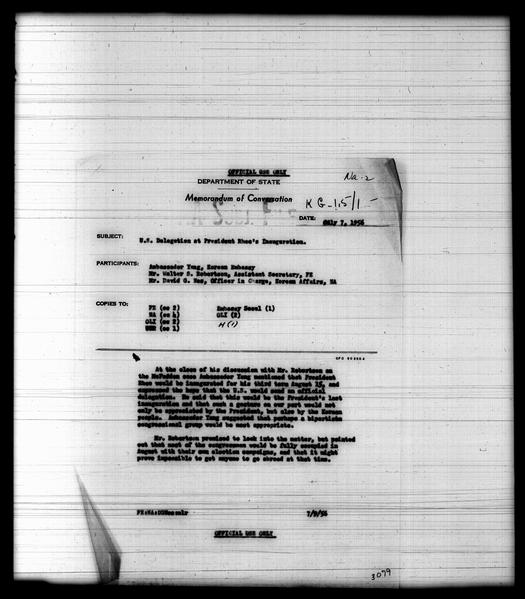 OFFICIAL USE ONLY
DEPARTMENT OF STATE
Na-2
Memorandum of Conversation
KG-1.5/1-
DATE: July 7, 1956
SUBJECT: U.S. Delegation at President Rhee's Inauguration.
PARTICIPANTS: Ambassador Yang, Korean Embassy
Mr. Walter S. Robertson, Assistant Secretary, FE
Mr. David G. Nes, Officer in Charge, Korean Affairs, NA
COPIES TO: FE (cc 2) Embassy Seoul (1)
NA (cc 4) OLI (2)
OLI (cc 2) H (1)
(cc 1)
At the close of his discussion with Mr. Robertson on
the McFadden case Ambassador Yang mentioned that President
Rhee would be inaugurated for his third term August 15, and
expressed the hope that the U.S. would send an official
delegation. He said that this would be the President's last
inauguration and that such a gesture on our part would not
only be appreciated by the President, but also by the Korean
people. Ambassador Yang suggested that perhaps a bipartisan
congressional group would be most appropriate.
Mr. Robertson promised to look into the matter, but pointed
out that most of the congressmen would be fully occupied in
August with their own election campaigns, and that it might
prove impossible to get anyone to go abroad at that time.
7/9/56
OFFICIAL USE ONLY
3099